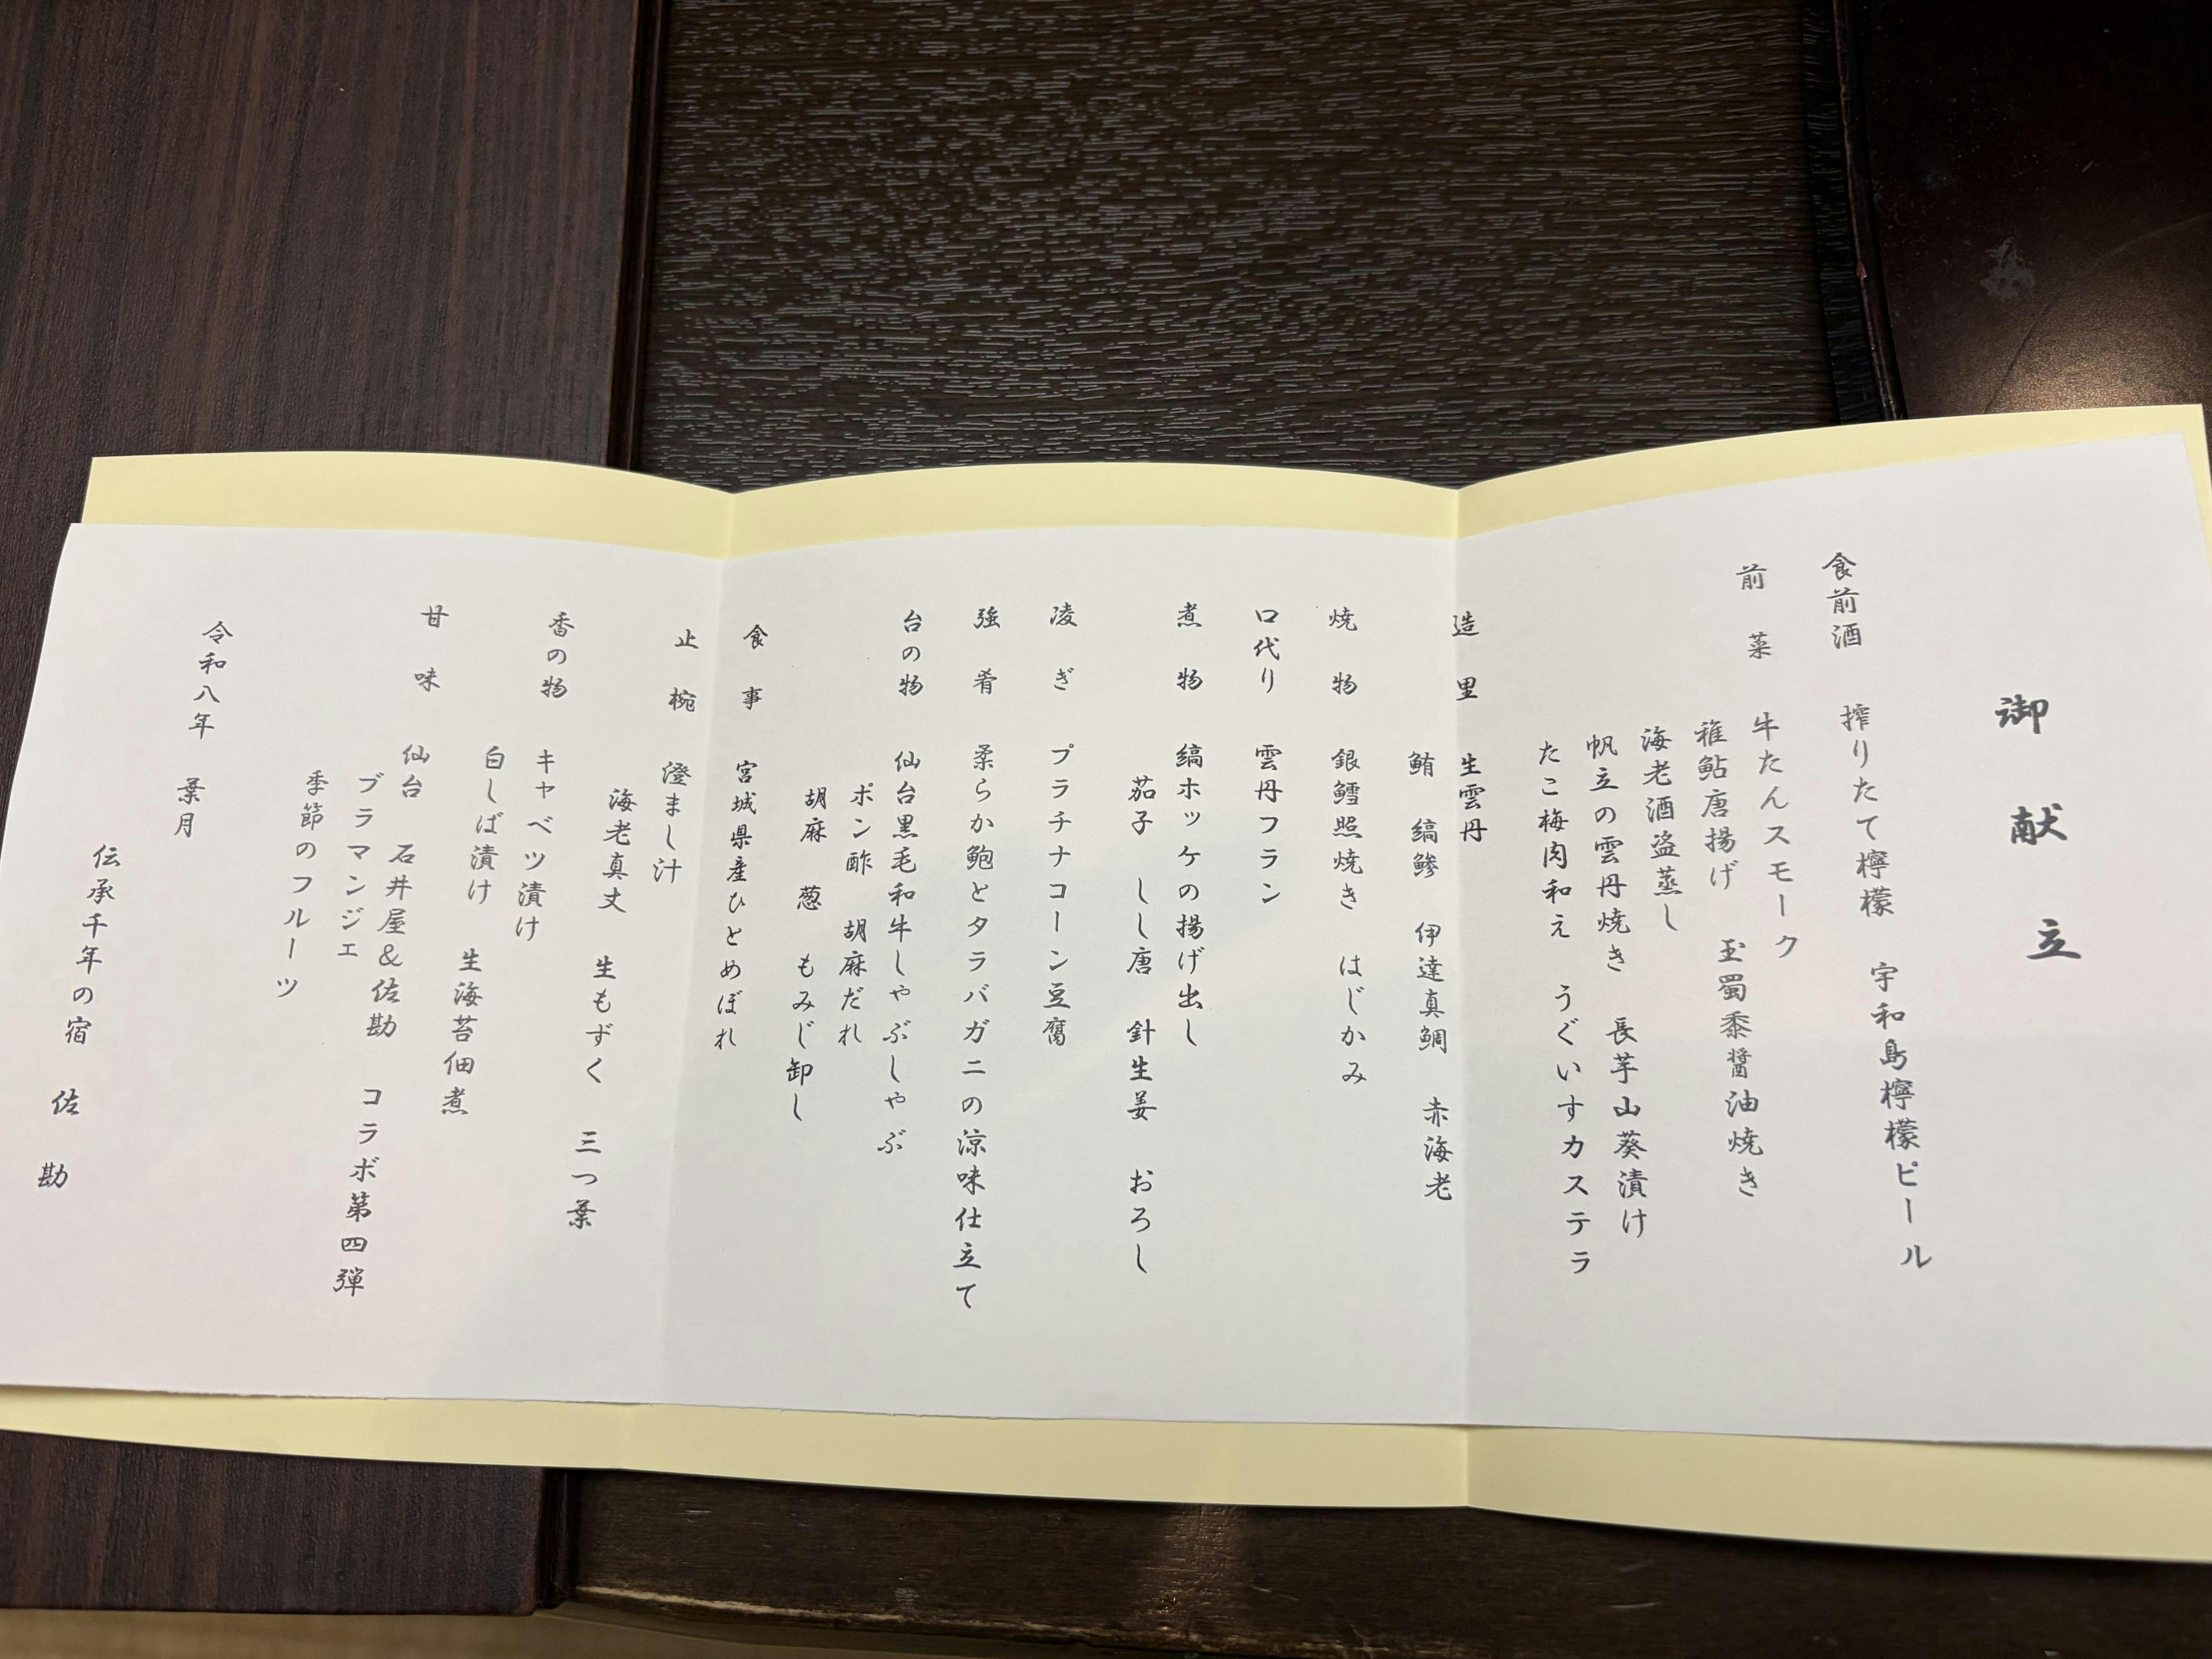 御献立
食前酒　搾りたて檸檬　宇和島檸檬ピール
前菜　牛たんスモーク
稚鮎唐揚げ　玉蜀黍醤油焼き
海老酒盗蒸し
帆立の雲丹焼き　長芋山葵漬け
たこ梅肉和え　うぐいすカステラ
造里　生雲丹
鮪　縞鯵　伊達真鯛　赤海老
焼物　銀鱈照焼き　はじかみ
口代り　雲丹フラン
煮物　縞ホッケの揚げ出し
茄子　しし唐　針生姜　おろし
凌ぎ　プラチナコーン豆腐
強肴　柔らか鮑とタラバガニの涼味仕立て
台の物　仙台黒毛和牛しゃぶしゃぶ
ポン酢　胡麻だれ
胡麻　葱　もみじ卸し
食事　宮城県産ひとめぼれ
止椀　澄まし汁
海老真丈　生もずく　三つ葉
香の物　キャベツ漬け
白しば漬け　生海苔佃煮
甘味　仙台　石井屋&佐勘　コラボ第四弾
ブラマンジェ
季節のフルーツ
令和八年　葉月
伝承千年の宿　佐勘